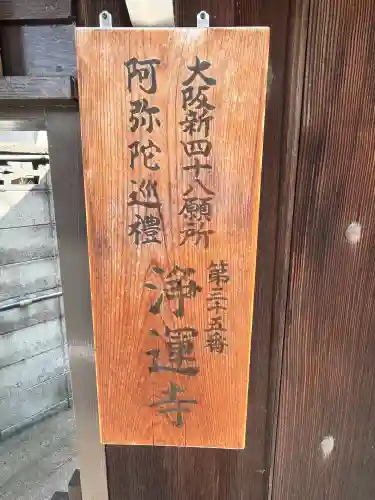 大阪新四十八願所
阿弥陀巡礼
第三十五番
浄運寺